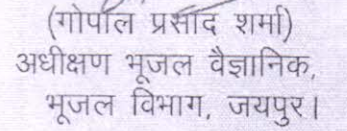 (गोपाल प्रसाद शर्मा)
अधीक्षण भूजल वैज्ञानिक,
भूजल विभाग, जयपुर।